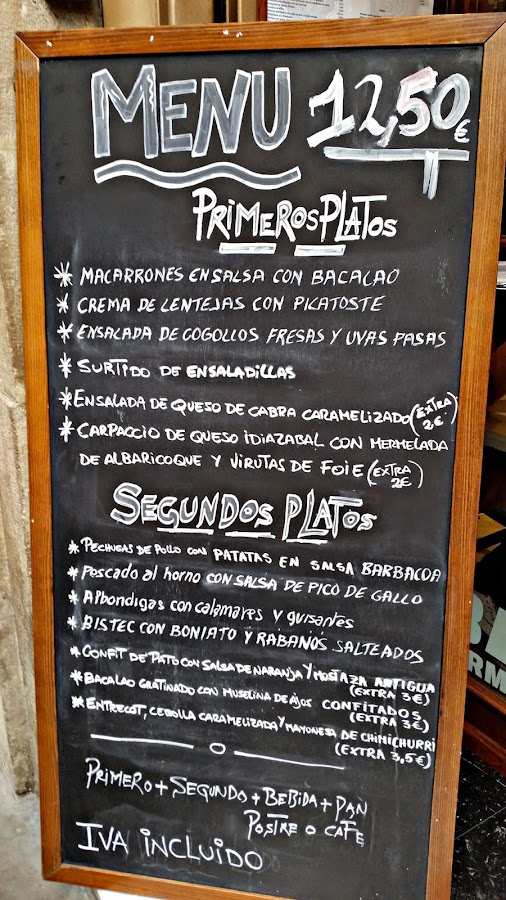 MENU 12,50€
PRIMEROS PLATOS
* MACARRONES EN SALSA CON BACALAO
* CREMA DE LENTEJAS CON PICATOSTE
* ENSALADA DE COGOLLOS FRESAS Y UVAS PASAS
* SURTIDO DE ENSALADILLAS
* ENSALADA DE QUESO DE CABRA CARAMELIZADO (EXTRA 2€)
* CARPACCIO DE QUESO IDIAZABAL CON MERMELADA
DE ALBARICOQUE Y VIRUTAS DE FOIE (EXTRA 2€)
SEGUNDOS PLATOS
* PECHUGAS DE POLLO CON PATATAS EN SALSA BARBACOA
* Pescado al horno CON SALSA DE PICO DE GALLO
* Albondigas con calamares y guisantes
* BISTEC CON BONIATO Y RABANOS SALTEADOS
* CONFIT DE PATO CON SALSA DE NARANJA Y MOSTAZA ANTIGUA
(EXTRA 3€)
* BACALAO GRATINADO CON MUSELINA DE AJOS CONFITADOS
(EXTRA 3€)
* ENTRECOT, CEBOLLA CARAMELIZADA Y MAYONESA DE CHIMICHURRI
(EXTRA 3,5€)
PRIMERO + SEGUNDO + BEBIDA + PAN
POSTRE O CAFE
IVA INCLUIDO